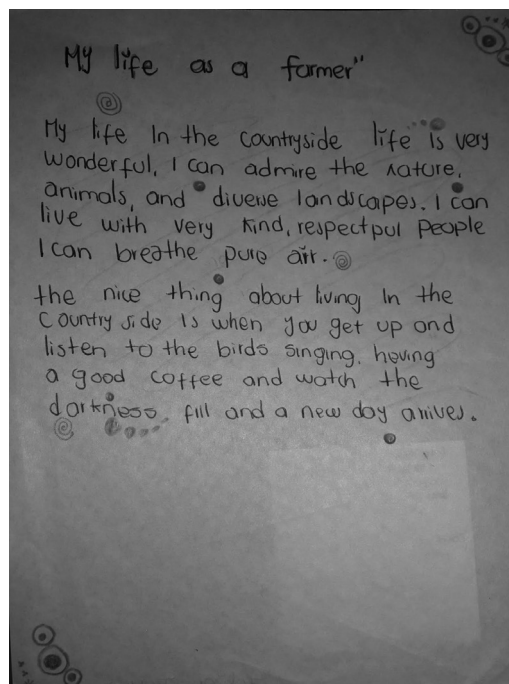 My life as a farmer"
My life In the countryside life is very
wonderful, I can admire the nature,
animals, and diverse landscapes. I can
live with very kind, respectpul people
I can breathe pure air.
the nice thing about living In the
country side Is when you get up and
listen to the birds singing, having
a good coffee and watch the
darkness fill and a new day arrives.